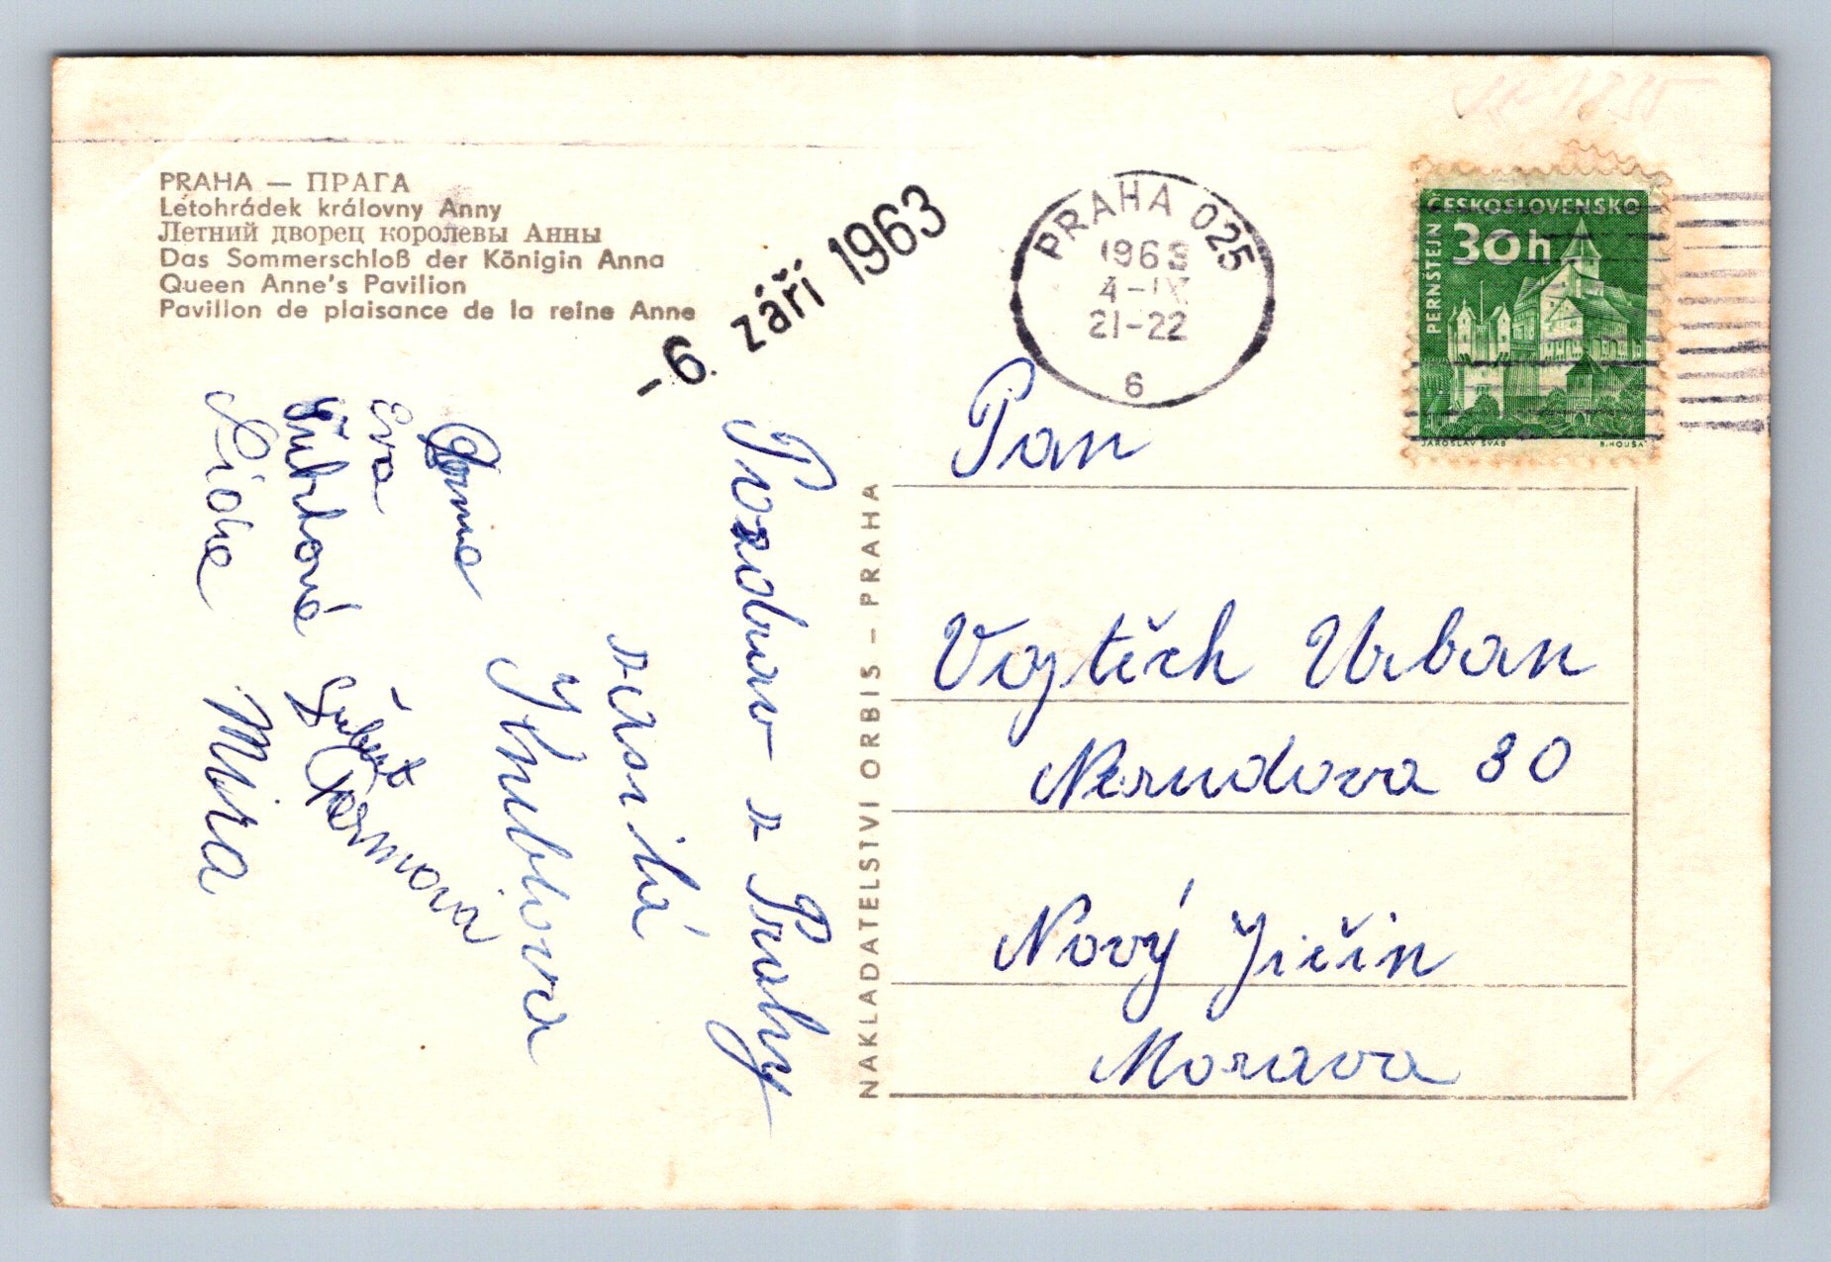 PRAHA — ПРАГА
Letohrádek královny Anny
Летний дворец королевы Анны
Das Sommerschloß der Königin Anna
Queen Anne's Pavilion
Pavillon de plaisance de la reine Anne
-6. září 1963
PRAHA 025
1963
4-IX
21-22
6
ČESKOSLOVENSKO
30h
PERNŠTEJN
JAROSLAV ŠVÁB
B.HOUSA
Pan
Vojtěch Urban
Nerudova 80
Nový Jičín
Morava
NAKLADATELSTVÍ ORBIS – PRAHA
Pozdrav z Prahy
Eva
Míra